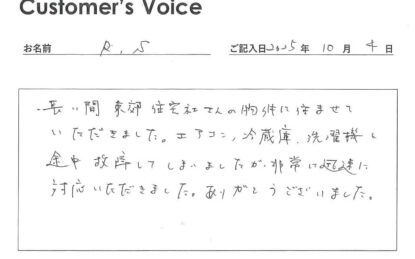 Customer's Voice
お名前 R.S ご記入日2025年 10月 4日
・長い間 東郊住宅社さんの物件に住ませて
いただきました。エアコン、冷蔵庫、洗濯機と
途中 故障してしまいましたが、非常に迅速に
対応いただきました。ありがとうございました。